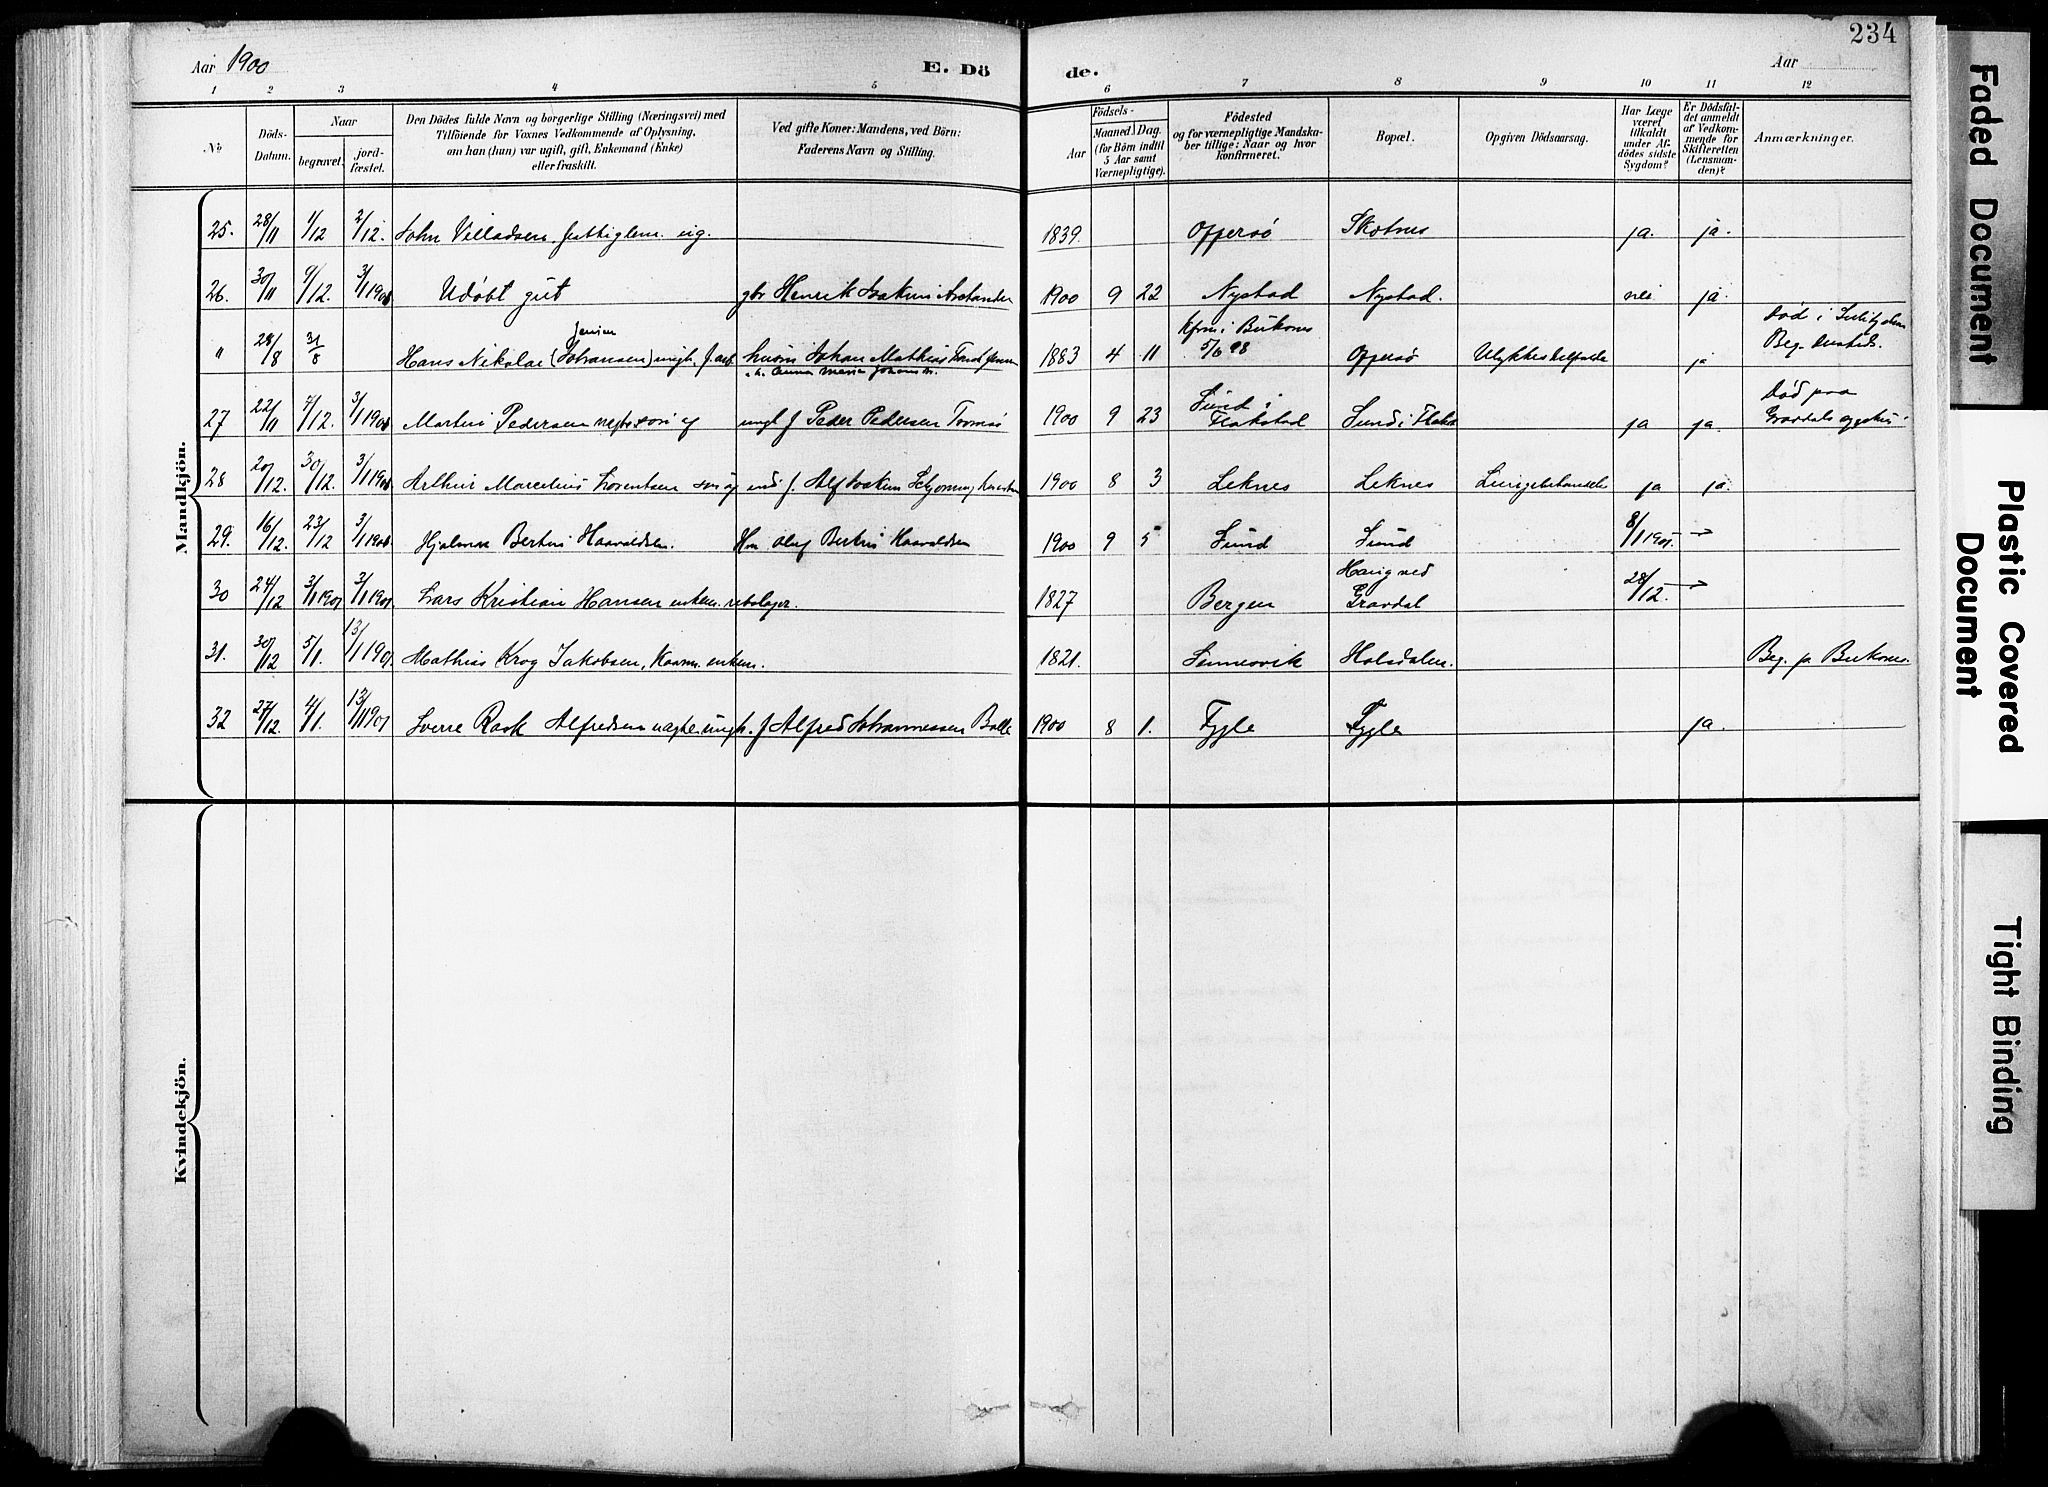 234
Aar 1900
E. Dö
de.
Aar
1 2 3 4 5 6 7 8 9 10 11 12
No
Döds-Datum.
Naar
begravet.
jord-fæstet.
Den Dödes fulde Navn og borgerlige Stilling (Næringsvei) med
Tilföiende for Voxnes Vedkommende af Oplysning,
om han (hun) var ugift, gift, Enkemand (Enke)
eller fraskilt.
Ved gifte Koner: Mandens, ved Börn:
Faderens Navn og Stilling.
Födsels-
Aar
Maaned Dag.
(for Börn indtil
5 Aar samt
Værnepligtige).
Födested
og for værnepligtige Mandska-
ber tillige: Naar og hvor
konfirmeret.
Bopæl.
Opgiven Dödsaarsag.
Har Læge
været
tilkaldt
under Af-
dödes sidste
Sygdom?
Er Dödsfal-
det anmeldt
af Vedkom-
mende for
Skifteretten
(Lensman-
den)?
Anmærkninger.
Mandkjön.
25. 28/11 1/12 2/12. John Villadsen, fattiglem. ug. 1839. Offersö Skotnes ja. ja.
26. 30/11 9/12. 3/1 1901 Udøbt gut gbr Henrik Joakim 1900 9 22 Nystad Nystad. nei ja.
" 28/8 31/8 Hans Nikolai (Johansen) Jensen husm Johan Mathias 1883 4 11 Kfrm i Buknes 5/6 98 Offersö Død i
Anna Maria Beg.
27 22/11 4/12. 3/1 1901 Martin Pedersen søn af ungk f Peder Pedersen 1900 9 23 Sund i Flakstad Sund i ja ja. Død paa
28 20/12. 30/12. 3/1 1901 Arthur Marcelius Lorentsen søn af f. Alf Joakim 1900 8 3 Leknes Leknes ja ja.
29. 16/12. 23/12 3/1 1901 Hjalmar Bertin Haavaldsen. Hm Oluf Bertin Haavaldsen 1900 9 5 Sund Sund 8/1 1901.
30 24/12 3/1 1901 3/1 1901. Lars Kristian Hansen enkem. 1827 Bergen Haug ved Gravdal 28/12.
31. 30/12 5/1. 13/1 1901. Mathias Krog Jakobsen, Kaarm. enkem. 1821. Sennesvik Holsdalen. Beg. p Buknes.
32 27/12. 4/1. 13/1 1901 Sverre Rask Alfredsen ungk. f Alfred Johannessen Bolle 1900 8 1. Fygle Fygle ja.
Kvindekjön.
Faded Document
Plastic Covered
Document
Tight Binding